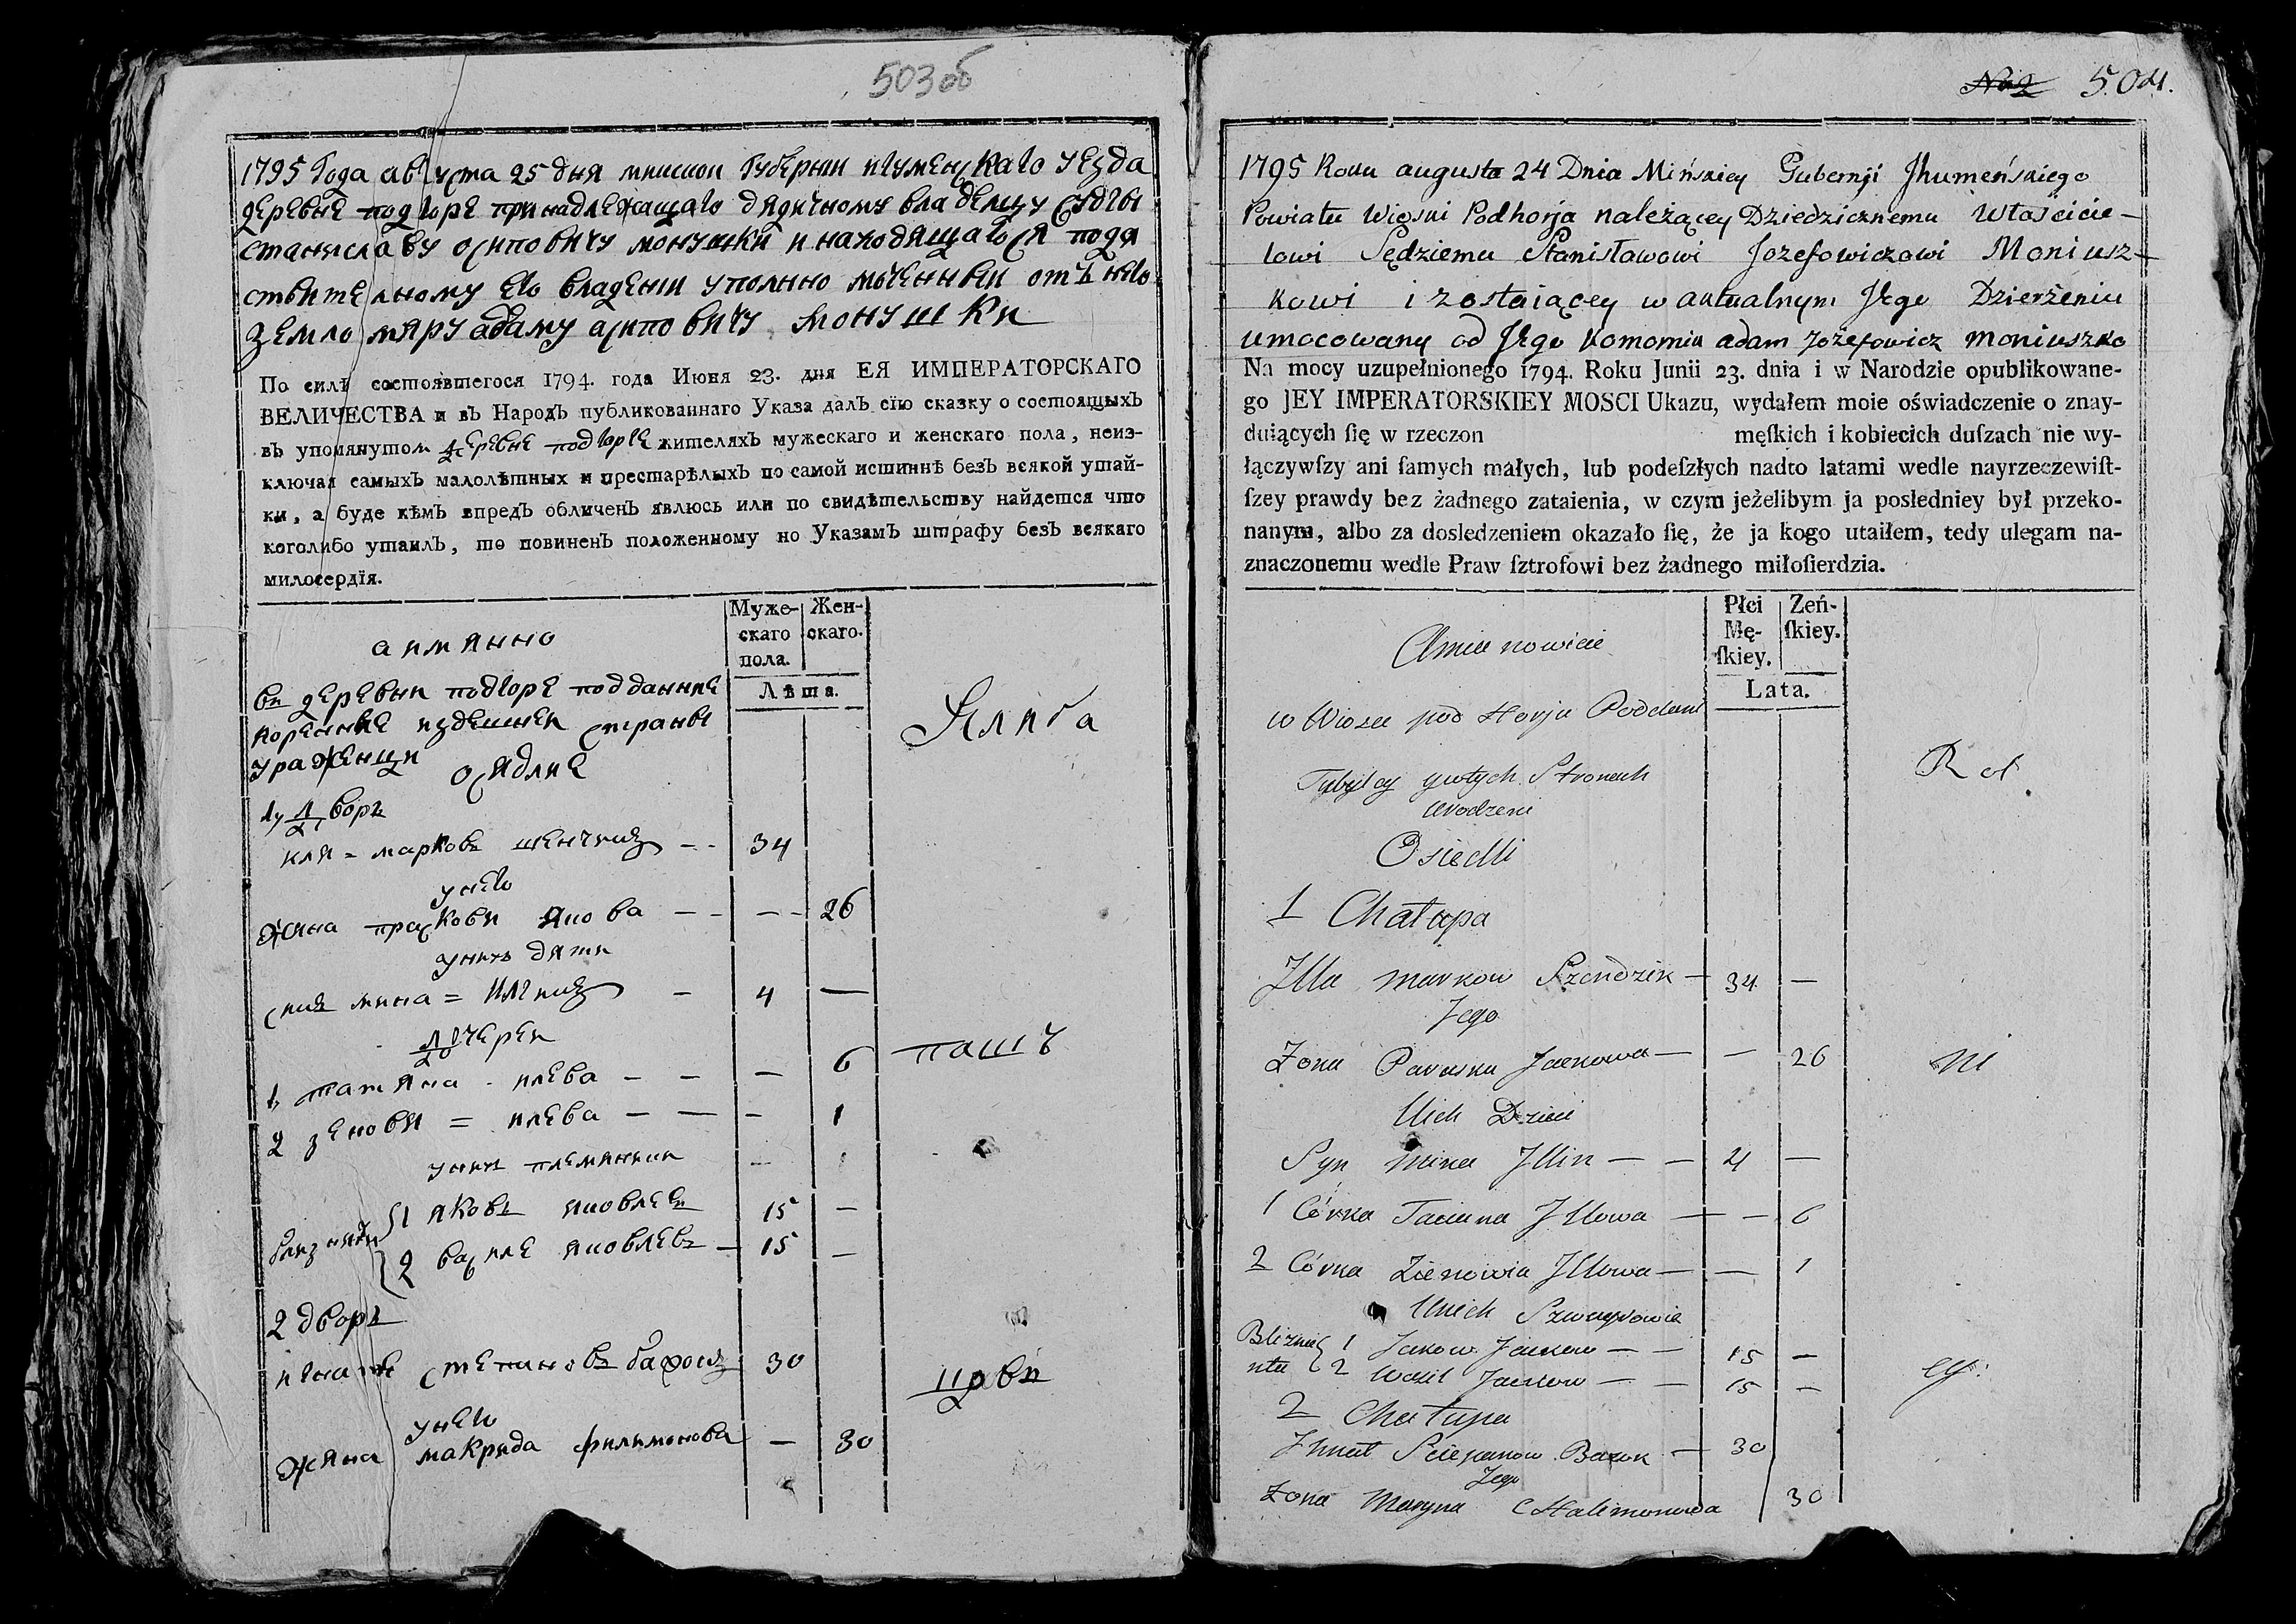 503 об
1795 Года августа 25 дня минской Губернии игуменскаго уезда
деревне подгоре принадлежащаго дядичному владелцу судьы
станиславу осиповичу монушки и находящагося по де
ствителному его владении уполно моченный отъ него
землемяру адаму асиповичу монушки
По силѣ состоявшегося 1794. года Июня 23. дня ЕЯ ИМПЕРАТОРСКАГО
ВЕЛИЧЕСТВА и въ Народъ публикованнаго Указа далъ сїю сказку о состоящыхъ
въ упомянутом деревне подгоре жителяхъ мужескаго и женскаго пола, неиз-
ключая самыхъ малолѣтных и престарѣлыхъ по самой истиннѣ безъ всякой утай-
ки, а буде кѣмъ впредъ обличенъ явлюсь или по свидѣтельству найдется что
коголибо утаилъ, то повиненъ положенному по Указамъ штрафу безъ всякаго
милосердїя.
Муже- скаго пола. Жен- скаго.
Лѣта.
а имянно
въ деревни подгоре подданние
коренные издешнеи страны
ураженци
осядлие
Ялига
1, Дворъ
иля = марковъ шенчикъ - - 34
унего
жена прасковя якова - - - - 26
унихъ дяти
синъ мина = иличикъ - 4 —
дочереи
1, татяна - илева - - — 6
пашъ
2 зеновя = илева — — — 1
унихъ племяники
близняти
1 яковъ яковлевъ 15 —
2 василе яковлевъ — 15 —
2 дворъ
игнатъ степановъ бахокъ 30
унего
жяна макрида филимонова — 30
№ 2 504.
1795 Roku augusta 24 Dnia Mińskiey Gubernji Jhumeńskiego
Powiatu Wioski Podhorja należącey Dziedzicznemu Właścicie-
lowi Sędziemu Stanisławowi Jozefowiczowi Moniusz-
kowi i zostaiącey w aktualnym Jego Dzierżeniu
umocowany od Jego Komornik adam Jozefowicz Moniuszko
Na mocy uzupełnionego 1794. Roku Junii 23. dnia i w Narodzie opublikowane-
go JEY IMPERATORSKIEY MOSCI Ukazu, wydałem moie oświadczenie o znay-
duiących ſię w rzeczon męſkich i kobiecich duſzach nie wy-
łączywſzy ani ſamych małych, lub podeſzłych nadto latami wedle nayrzeczewiſt-
ſzey prawdy bez żadnego zataienia, w czym jeżelibym ja posledniey był przeko-
nanym, albo za dosledzeniem okazało ſię, że ja kogo utaiłem, tedy ulegam na-
znaczonemu wedle Praw ſztrofowi bez żadnego miłoſierdzia.
Płci Mę- ſkiey. Zeń- ſkiey.
Lata.
A mianowicie
w Wiosce pod Horju Poddani
Tubylcy ywtych Stronach
urodzeni
Osiedli
1 Chałupa
Jlla Markow Szendzik — 34 —
Jego
Zona Paraska Jackowa — — 26
ni
Uich Dzieci
Syn Mina Jllin — — 4 —
1 Córka Taciana Jllowa — — 6
2 Córka Zienowia Jllowa — — 1
Unich Szwagrowie
Blizniu
nta
1 Jakow Jackow — — 15 —
2 Wasil Jackow — — 15 —
2 Chałupa
Jhnat Sciepanow Bacok — 30
Jego
Zona Maryna Chalimonowa 30